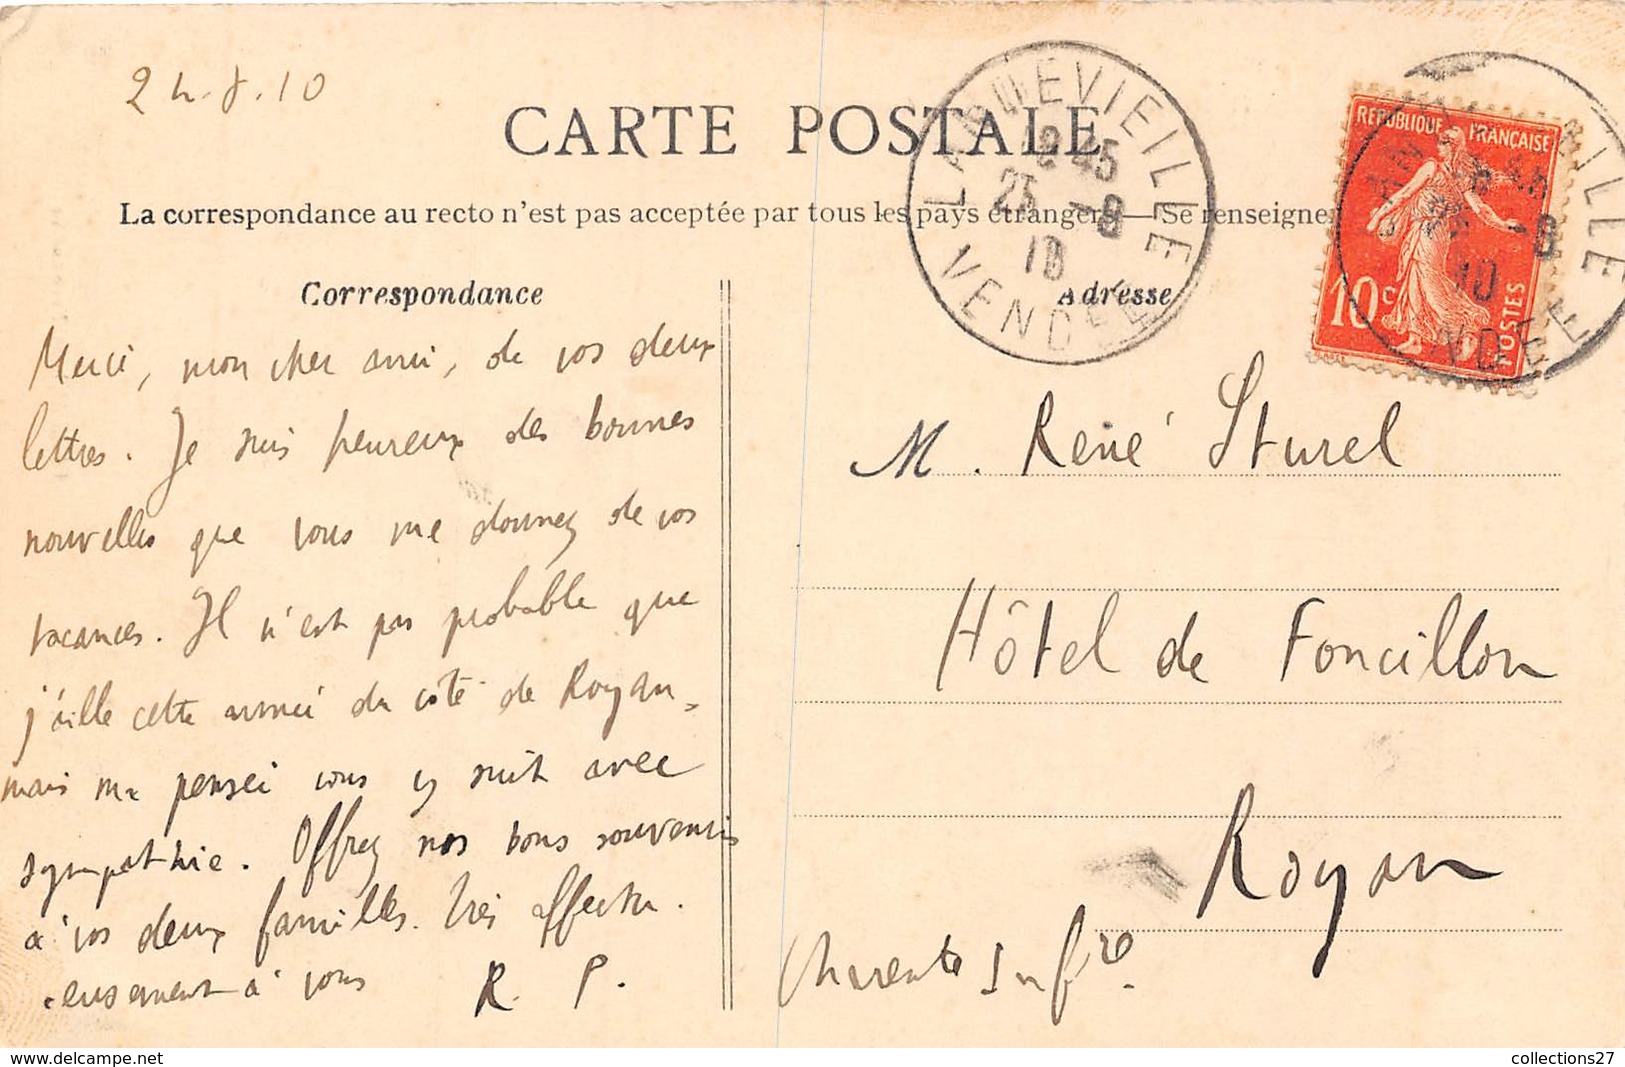 24.8.10
CARTE POSTALE
La correspondance au recto n'est pas acceptée par tous les pays étrangers — Se renseigner
Correspondance
Merci, mon cher ami, de vos deux
lettres. Je suis heureux des bonnes
nouvelles que vous me donnez de vos
vacances. Il n'est pas probable que
j'aille cette année du côté de Royan,
mais ma pensée vous y suit avec
sympathie. Offrez nos bons souvenirs
à vos deux familles. Très affectu.
eusement à vous
R. P.
LANDEVIEILLE
25 -8
10
VENDÉE
RÉPUBLIQUE FRANÇAISE
10c
POSTES
Adresse
M. René Sturel
Hôtel de Foncillon
Royan
Charente Infre.
collections27